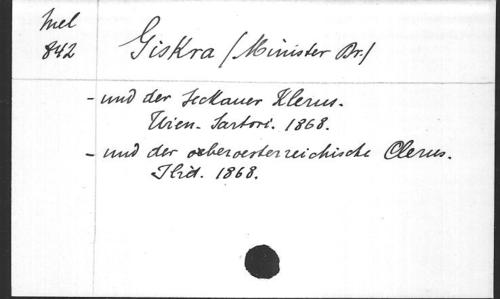 Mel
842
Giskra (Minister Dr.)
- und der Seckauer Klerus.
Wien. Sartori. 1868.
- und der oberoesterreichische Clerus.
Ibid. 1868.